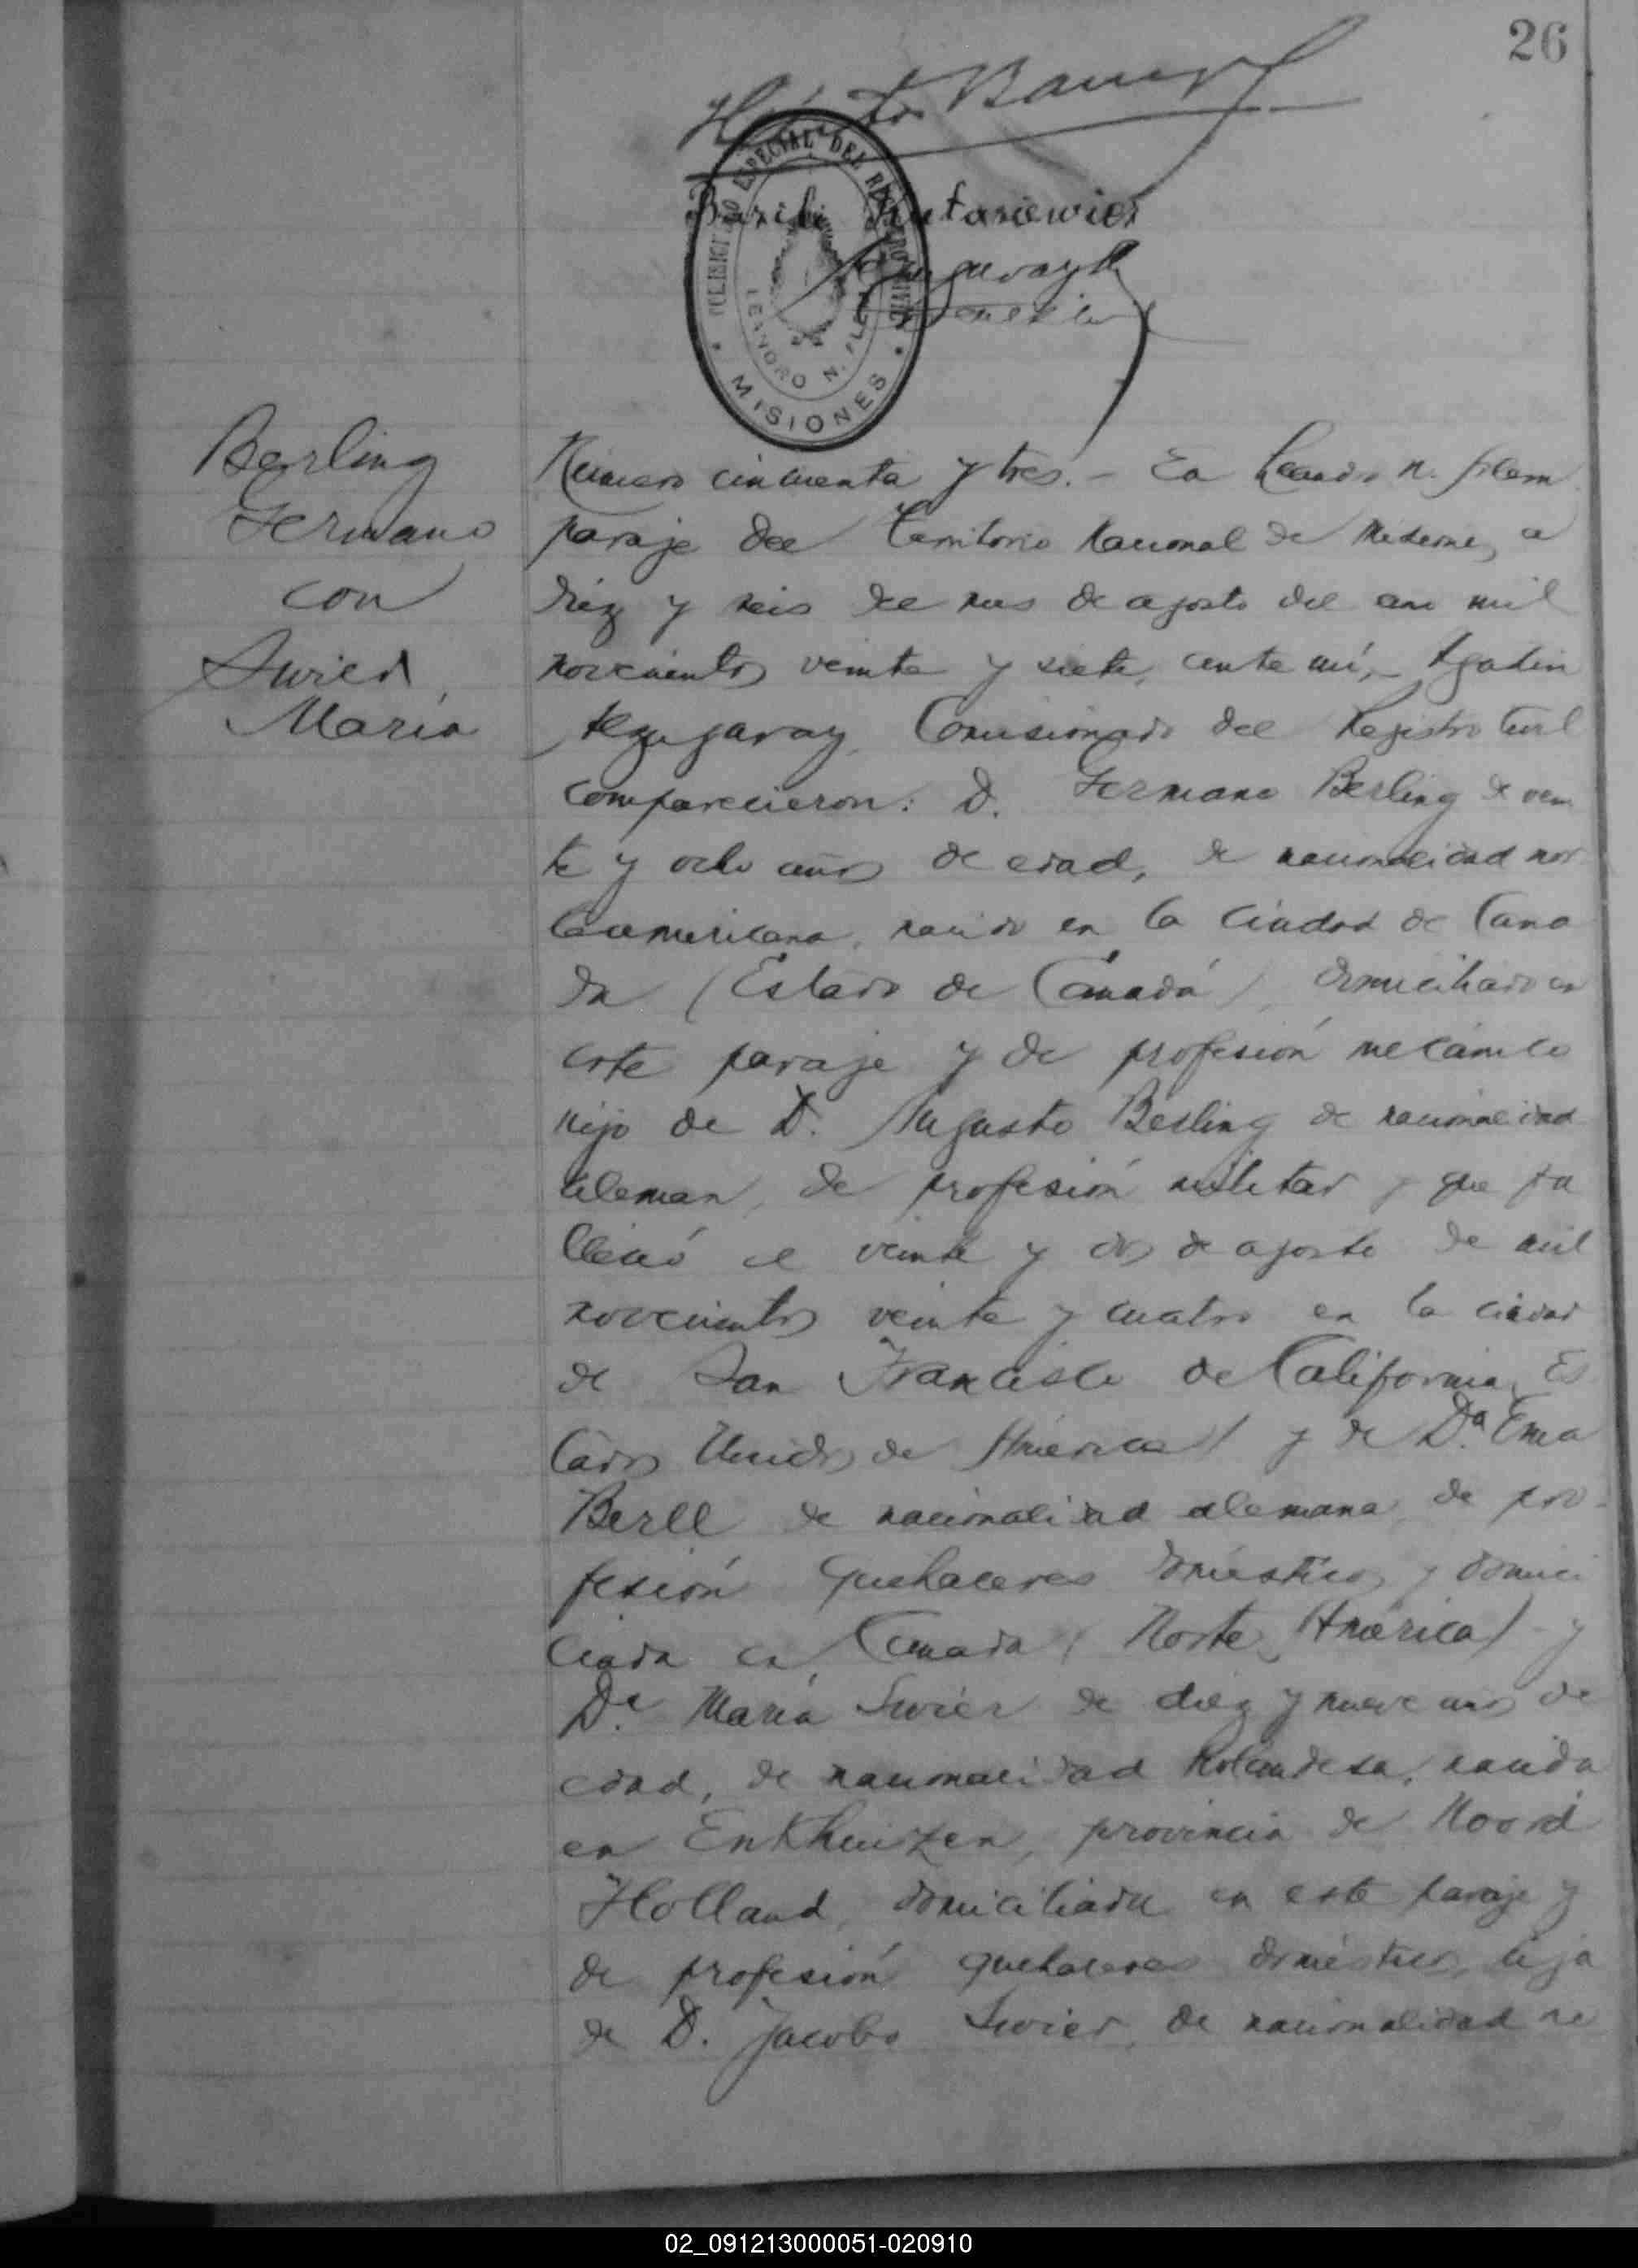 26
COMISIONADO ESPECIAL DEL REGISTRO CIVIL
LEANDRO N. ALEM
MISIONES
Berling
Germano
con
Swier,
María
Número cincuenta y tres.- En Leandro N. Alem
paraje del Territorio Nacional de Misiones, a
diez y seis del mes de agosto del año mil
novecientos veinte y siete, ante mí,
Comisionado del Registro Civil
comparecieron: D. Germano Berling de vein
te y ocho años de edad, de nacionalidad nor
teamericana, nacido en la Ciudad de Cana
da (Estado de Canadá), domiciliado en
este paraje y de profesión mecánico
hijo de D. Augusto Berling de nacionalidad
aleman, de profesión militar y que fa
lleció el veinte y dos de agosto de mil
novecientos veinte y cuatro en la ciudad
de San Francisco de California, Es
tados Unidos de América) y de Da. Ema
Berll de nacionalidad alemana, de pro-
fesión quehaceres domésticos y domici
liada en Canada (Norte América) - y
Da. María Swier de diez y nueve años de
edad, de nacionalidad holandesa, nacida
en Enkhuizen, provincia de Noord
Holland, domiciliada en este paraje y
de profesión quehaceres domésticos, hija
de D. Jacobo Swier, de nacionalidad
02_091213000051-020910